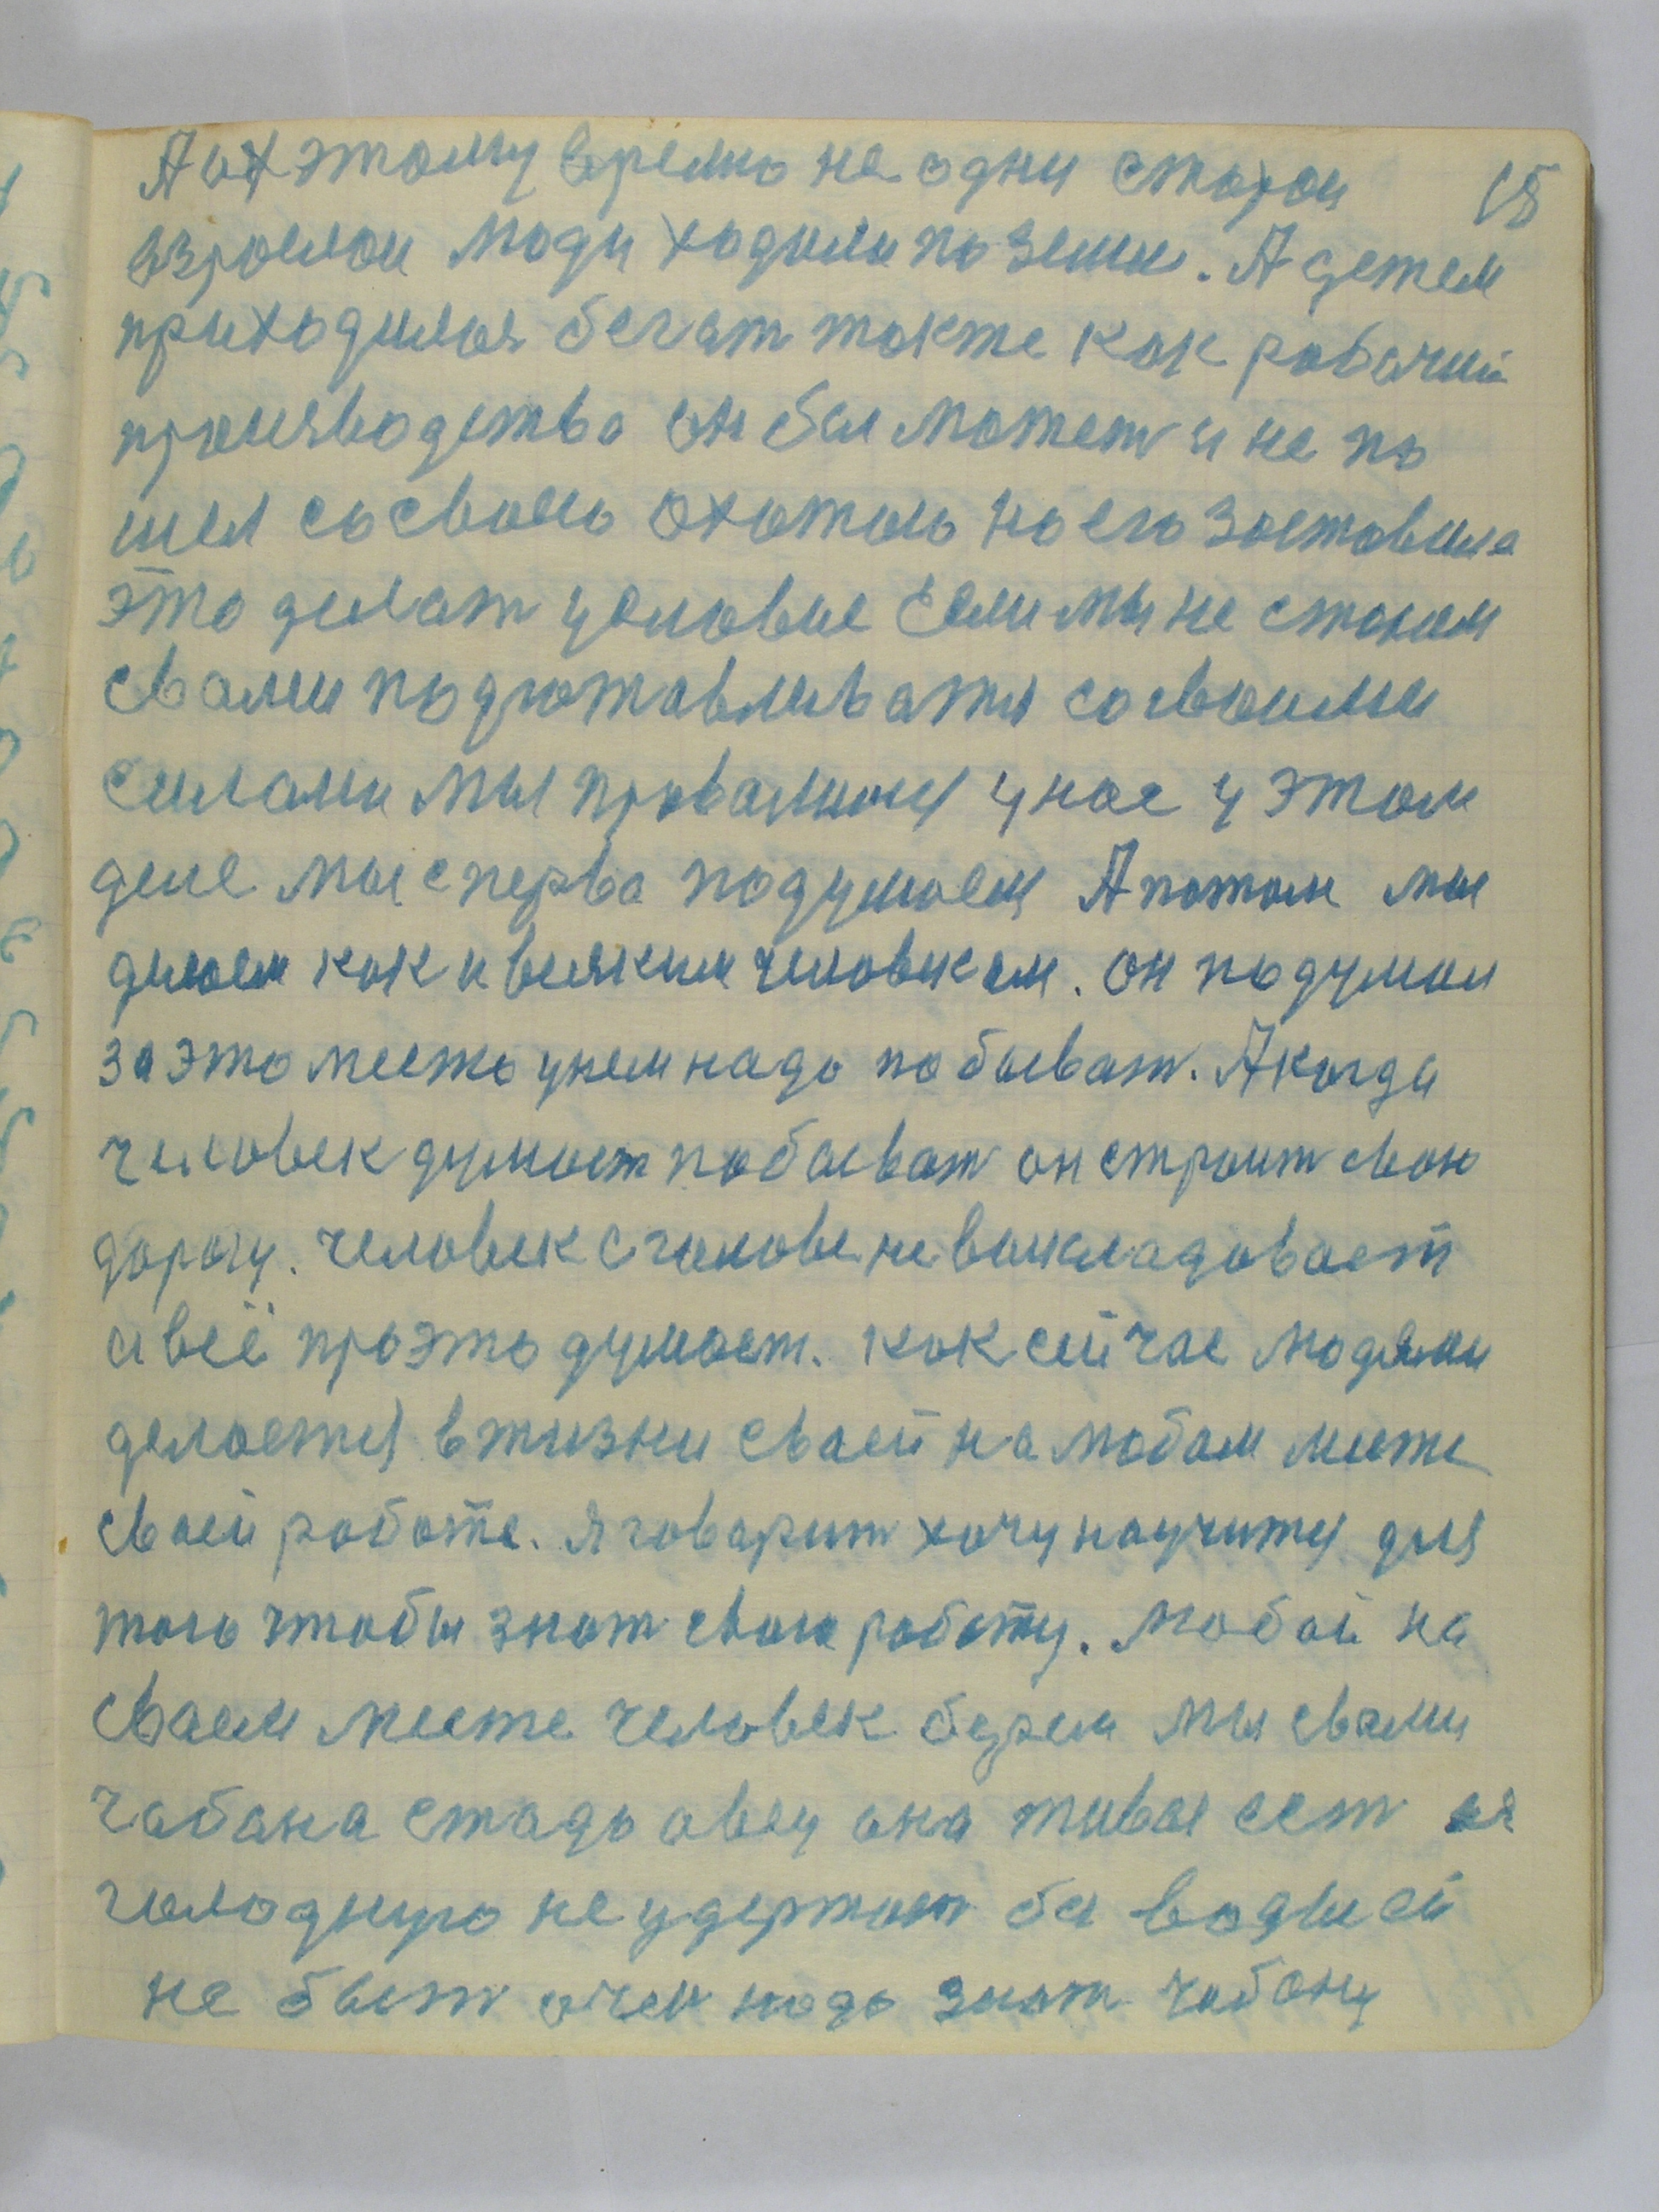 А к этому времю не одни старои 15
взрослои люди ходили по земли. А детем
приходилоя бегат также как рабочий
произвводства он бы может и не по
шел со своею охотою но его заставила
это делат условие Если мы не станем
с вами подготавливатя со своими
силами мы провалимся у нас у этом
деле мы сперва подумаем А потом мы
делаем как и всяким человиком. он подумал
за это место унем надо побыват. А когда
человек думает побыват он строит свою
дорогу. человек с голове не викладовает
а всё про это думает. как сейчас людями
делается в жизни своей на любом месте
своей работе. Я говорит хочу научится для
того чтобы знат свою работу. любой на
своем месте человек берем мы с вами
чабана стадо овец она живая ест ея
голодную не удержат бы воды ей
не быт очен надо знат чабону